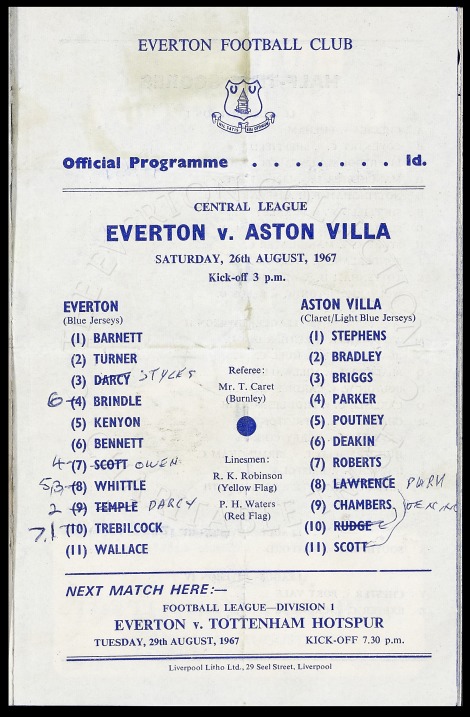 EVERTON FOOTBALL CLUB
Official Programme . . . . . . . 1d.
CENTRAL LEAGUE
EVERTON v. ASTON VILLA
SATURDAY, 26th AUGUST, 1967
Kick-off 3 p.m.
EVERTON
(Blue Jerseys)
(1) BARNETT
(2) TURNER
(3) DARCY STYLES
6 (4) BRINDLE
(5) KENYON
(6) BENNETT
4 (7) SCOTT OWEN
5,3 (8) WHITTLE
2 (9) TEMPLE DARCY
7,1 (10) TREBILCOCK
(11) WALLACE
Referee:
Mr. T. Caret
(Burnley)
Linesmen:
R. K. Robinson
(Yellow Flag)
P. H. Waters
(Red Flag)
ASTON VILLA
(Claret/Light Blue Jerseys)
(1) STEPHENS
(2) BRADLEY
(3) BRIGGS
(4) PARKER
(5) POUTNEY
(6) DEAKIN
(7) ROBERTS
(8) LAWRENCE
(9) CHAMBERS
(10) RUDGE
(11) SCOTT
NEXT MATCH HERE:—
FOOTBALL LEAGUE—DIVISION 1
EVERTON v. TOTTENHAM HOTSPUR
TUESDAY, 29th AUGUST, 1967 KICK-OFF 7.30 p.m.
Liverpool Litho Ltd., 29 Seel Street, Liverpool